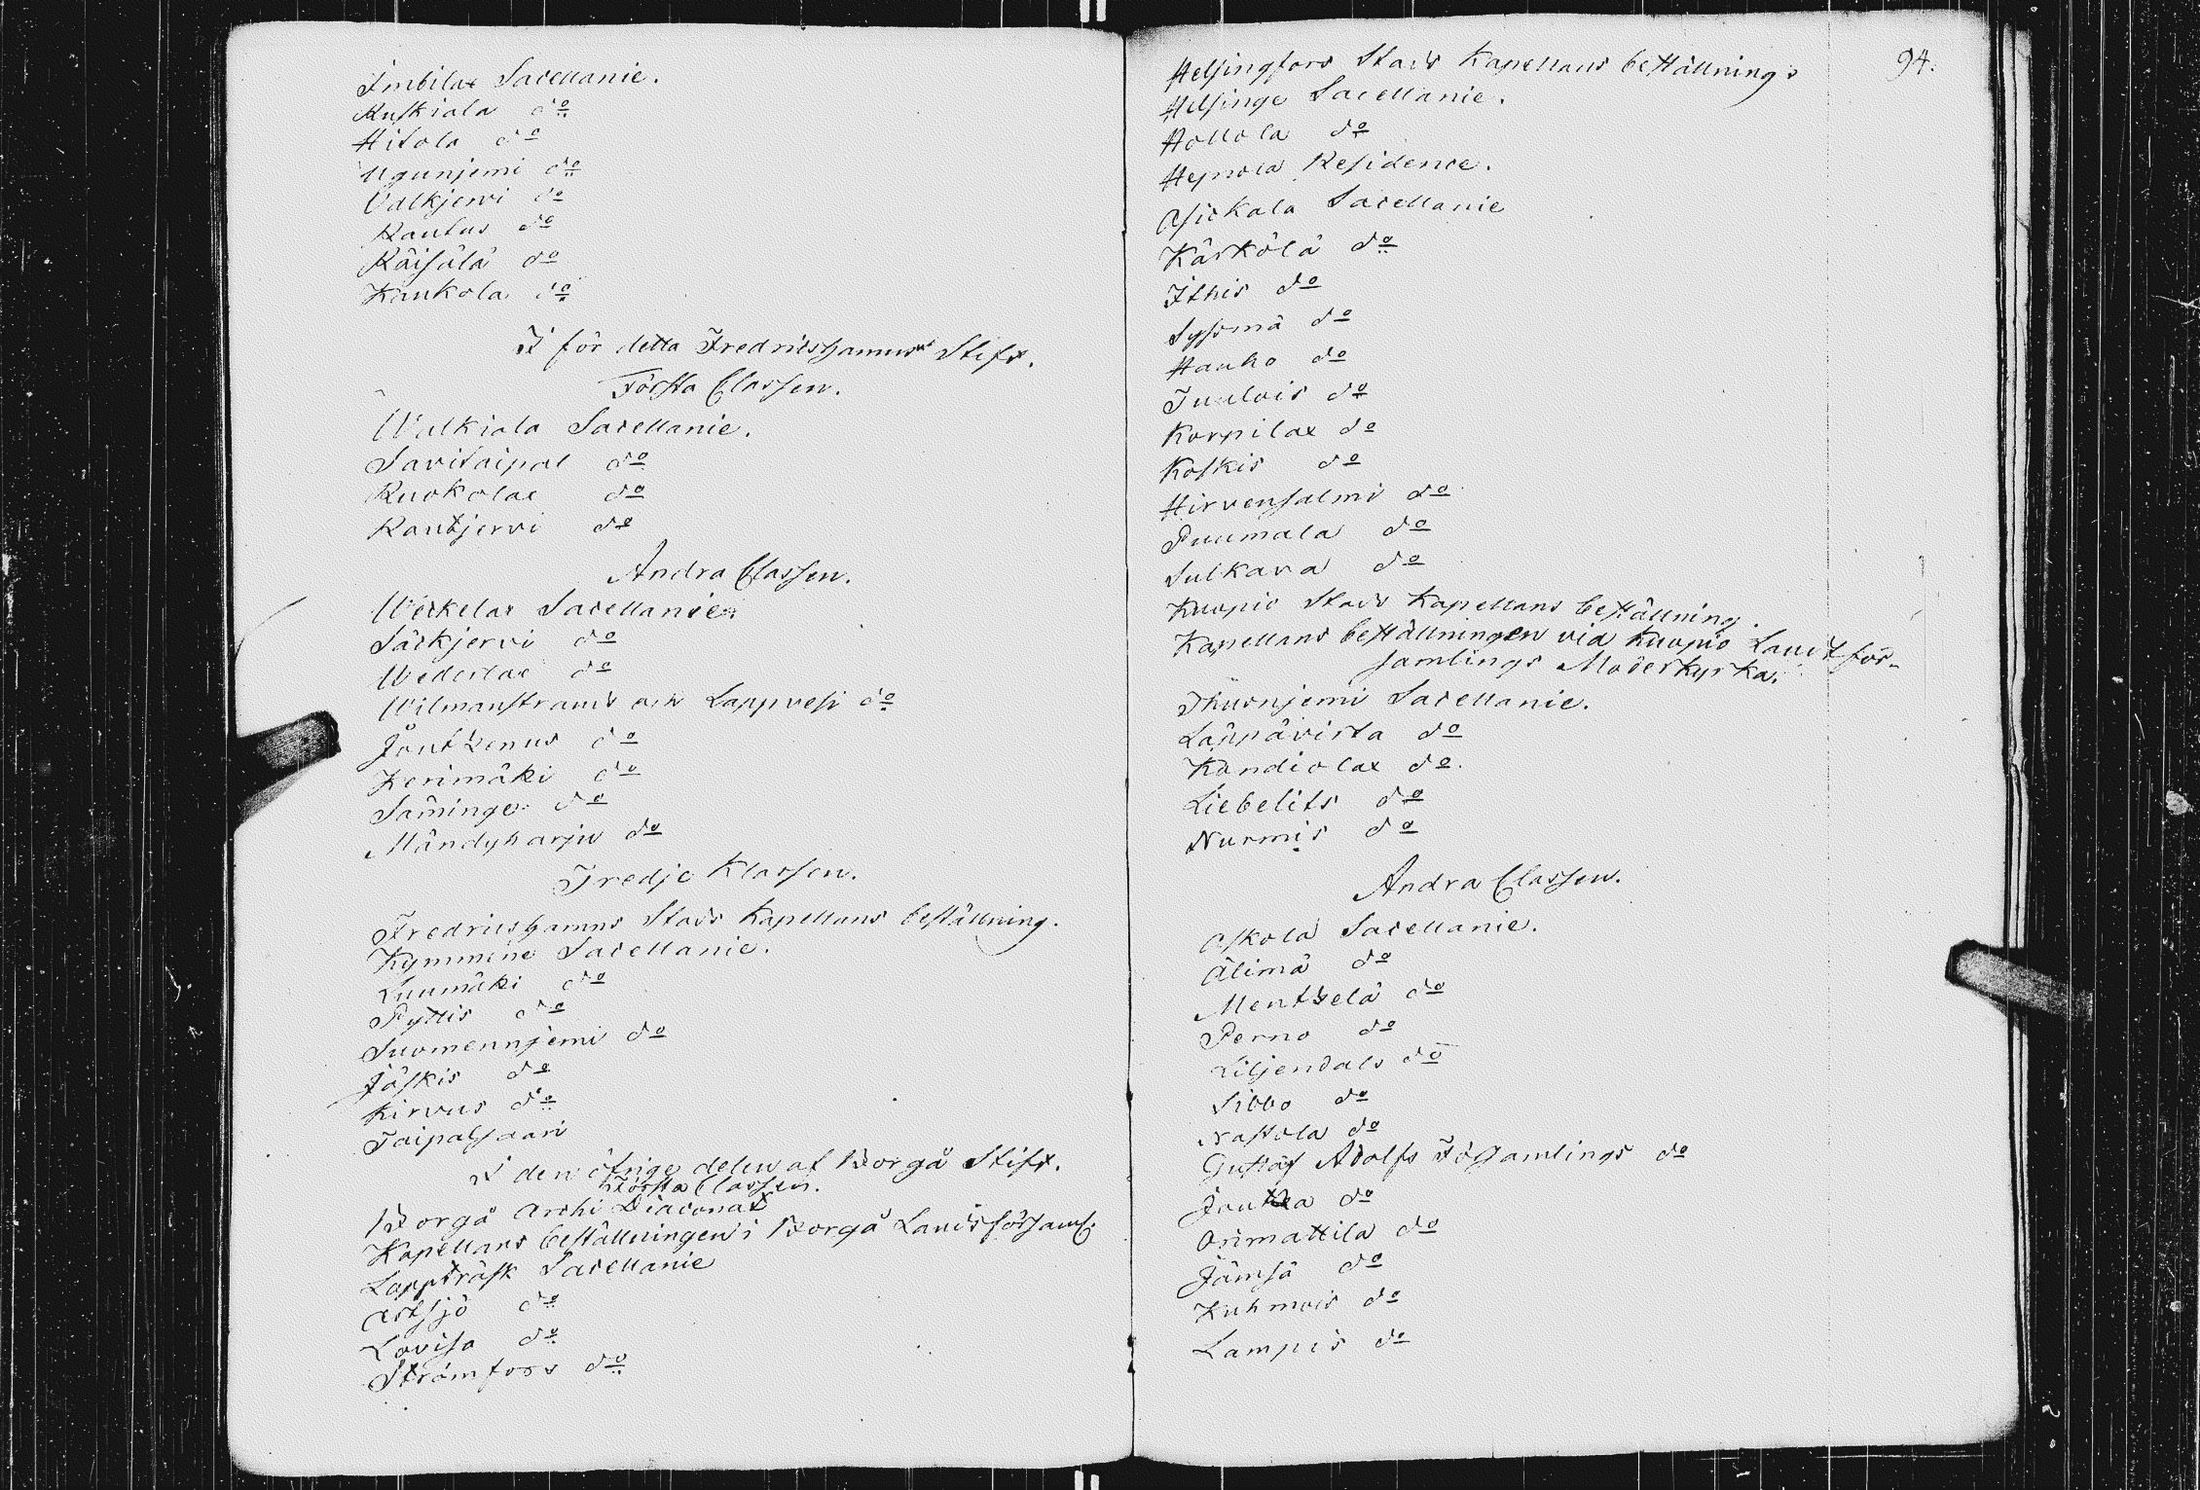 Imbilax Sacellanie.
Ruskiala do
Hitola do
Ugunjemi do
Valkjervi do
Rautus do
Räisälä do
Kaukola do
I för detta Fredricshamns Stift.
Första Classen.
Walkiala Sacellanie.
Savitaipal do
Ruokolax do
Rautjervi do
Andra Classen.
Weckelax Sacellanie.
Säckjervi do
Wederlax do
Wilmanstrand och Lappvesi do
Joutzenus do
Kerimäki do
Säminge do
Mändyharju do
Tredje Klassen.
Fredricshamns Stads Kapellans beställning.
Kymmene Sacellanie.
Luumäki do
Pyttis do
Suomennjemi do
Jäskis do
Kirvus do
Taipalsaari
I den öfrige delen af Borgå Stift.
Första Classen.
Borgå Archi Diaconat
Kapellans beställningen i Borgå Landsförsaml.
Lappträsk Sacellanie
Artsjö do
Lovisa do
Strömfors do
94.
Helsingfors Stads Kapellans beställnings
Helsinge Sacellanie.
Hollola do
Heinola Residence.
Asickala Sacellanie
Kärkölä do
Itthis do
Syssmä do
Hauho do
Tuulois do
Korpilax do
Koskis do
Hirvensalmi do
Puumala do
Sulkava do
Kuopio Stads Kapellans beställning.
Kapellans beställningen vid Kuopio Landtför-
samlings Moderkyrka.
Thusnjemi Sacellanie.
Läppävirta do
Kandiolax do.
Liebelits do
Nurmis do
Andra Classen.
Askola Sacellanie.
Älimä do
Mentzelä do
Perno do
Liljendals do
Sibbo do
Nastola do
Gustaf Adolfs Församlings do
Joutza do
Orimattila do
Jämsä do
Kuhmois do
Lampis do